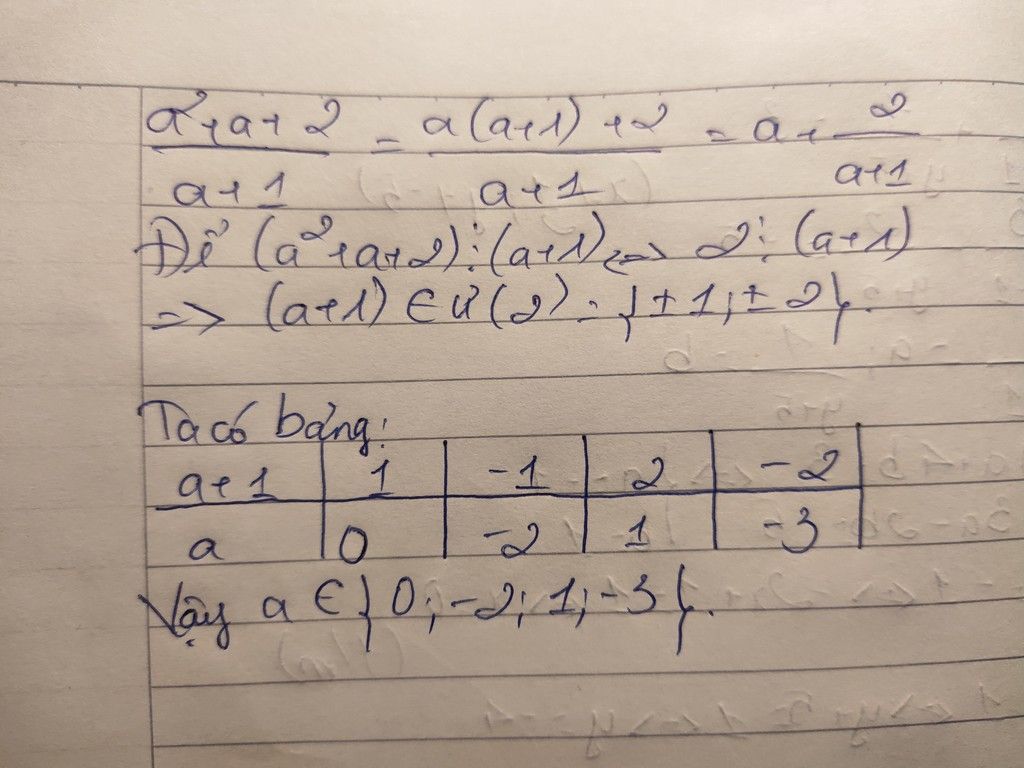 a²+a+2/a+1 = a(a+1)+2/a+1 = a+ 2/a+1
Để (a²+a+2)⋮(a+1) <=> 2⋮(a+1)
=> (a+1) ∈ Ư(2) = {±1;±2}.
Ta có bảng:
a+1 | 1 | -1 | 2 | -2
a | 0 | -2 | 1 | -3
Vậy a ∈ {0;-2;1;-3}.